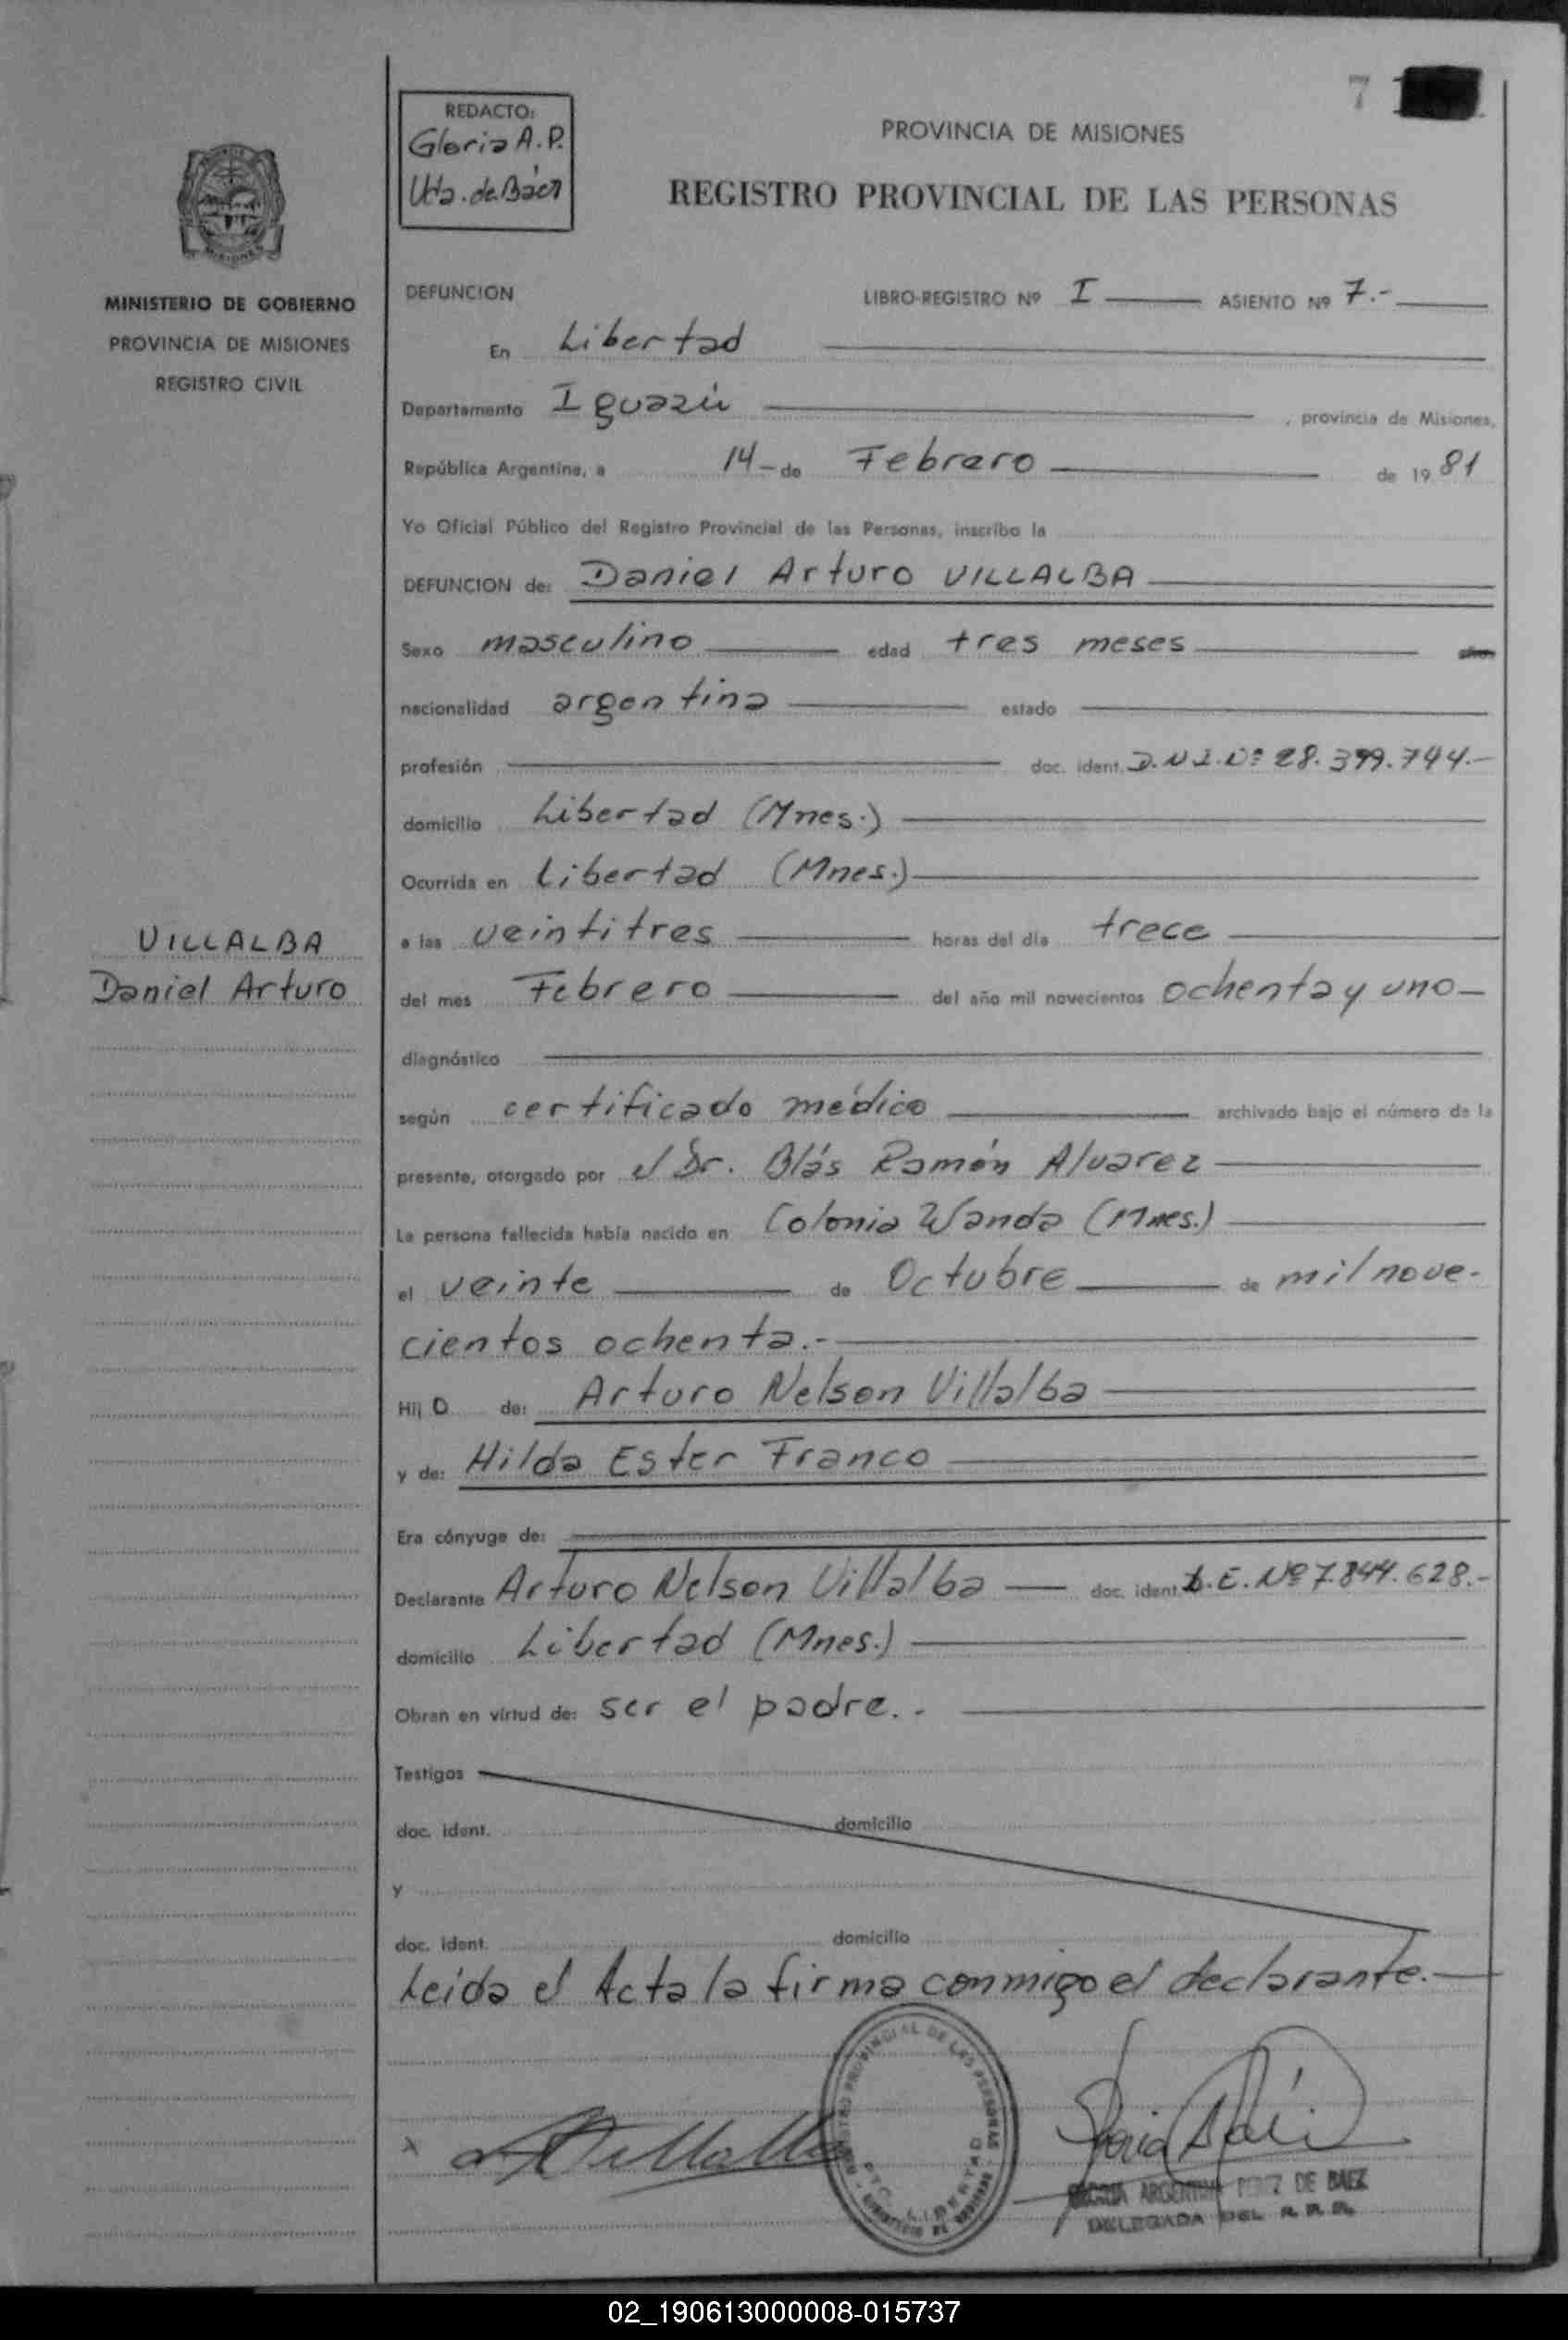 7
REDACTO:
Gloria A. P.
Vda. de Báez
PROVINCIA DE MISIONES
REGISTRO PROVINCIAL DE LAS PERSONAS
MISIONES
MINISTERIO DE GOBIERNO
PROVINCIA DE MISIONES
REGISTRO CIVIL
DEFUNCION LIBRO-REGISTRO Nº I ASIENTO Nº 7.-
En Libertad
Departamento Iguazú , provincia de Misiones,
República Argentina, a 14- de Febrero de 19 81
Yo Oficial Público del Registro Provincial de las Personas, inscribo la
DEFUNCION de: Daniel Arturo VILLALBA
Sexo masculino edad tres meses
nacionalidad argentina estado
profesión doc. ident. D.N.I. Nº 28.399.744.-
domicilio Libertad (Mnes.)
Ocurrida en Libertad (Mnes.)
VILLALBA
Daniel Arturo
a las veintitres horas del día trece
del mes Febrero del año mil novecientos ochenta y uno-
diagnóstico
según certificado médico archivado bajo el número de la
presente, otorgado por el Dr. Blás Ramón Alvarez
La persona fallecida había nacido en Colonia Wanda (Mnes.)
el veinte de Octubre de mil nove-
cientos ochenta.-
Hij o de: Arturo Nelson Villalba
y de: Hilda Ester Franco
Era cónyuge de:
Declarante Arturo Nelson Villalba doc. ident. D.E. Nº 7.844.628.-
domicilio Libertad (Mnes.)
Obran en virtud de: ser el padre..
Testigos
doc. ident. domicilio
y
doc. ident. domicilio
Leida el Acta la firma conmigo el declarante.-
REGISTRO PROVINCIAL DE LAS PERSONAS
LIBERTAD
x AVillalba
Gloria Báez
GLORIA ARGENTINA PEREZ DE BAEZ
DELEGADA DEL R. P. P.
02_190613000008-015737